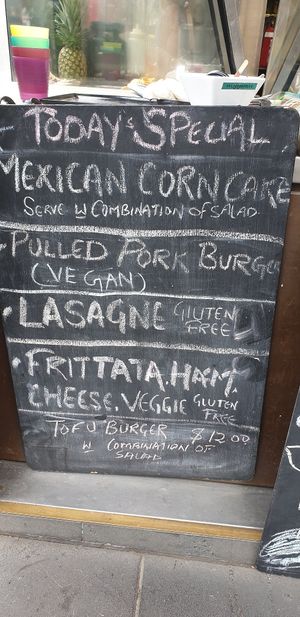 TODAY'S SPECIAL
MEXICAN CORN CAKE
SERVE W COMBINATION OF SALAD
PULLED PORK BURGER
(VEGAN)
• LASAGNE GLUTEN FREE
• FRITTATA. HAM.
CHEESE. VEGGIE GLUTEN FREE
TOFU BURGER $12.00
W COMBINATION OF
SALAD